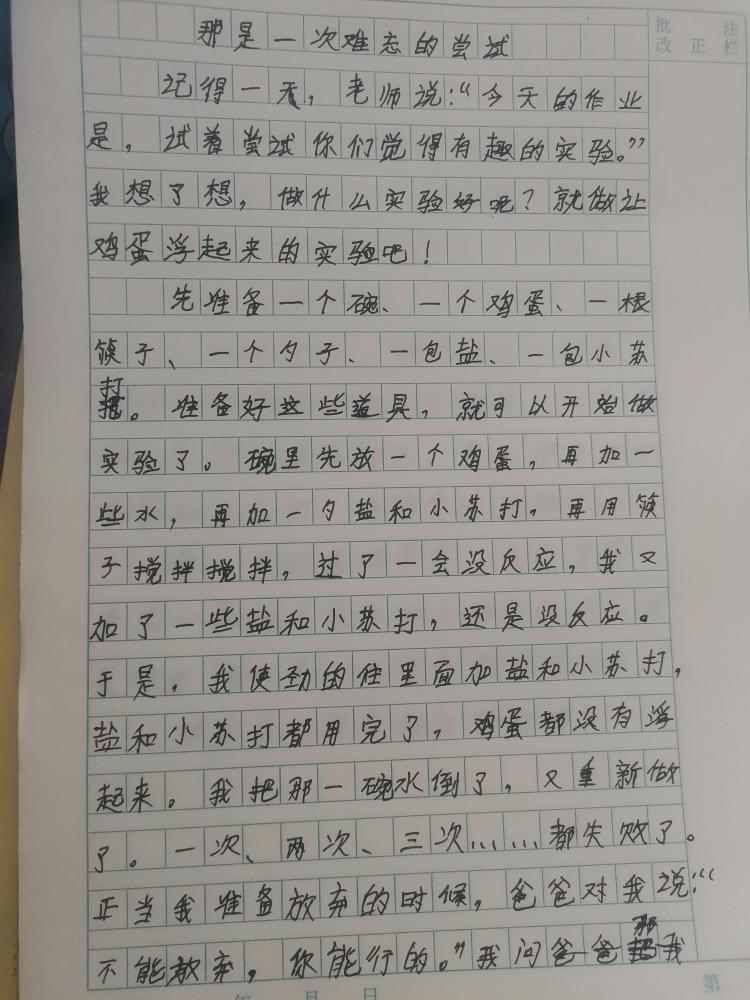 批 注
改 正 栏
那是一次难忘的尝试
记得一天，老师说：“今天的作业
是，试着尝试你们觉得有趣的实验。”
我想了想，做什么实验好呢？就做让
鸡蛋浮起来的实验吧！
先准备一个碗、一个鸡蛋、一根
筷子、一个勺子、一包盐、一包小苏
打。准备好这些道具，就可以开始做
实验了。碗里先放一个鸡蛋，再加一
些水，再加一勺盐和小苏打，再用筷
子搅拌搅拌，过了一会没反应，我又
加了一些盐和小苏打，还是没反应。
于是，我使劲的往里面加盐和小苏打，
盐和小苏打都用完了，鸡蛋都没有浮
起来。我把那一碗水倒了，又重新做
了。一次、两次、三次……都失败了。
正当我准备放弃的时候，爸爸对我说：“
不能放弃，你能行的。”我问爸爸那我
年 月 日
第